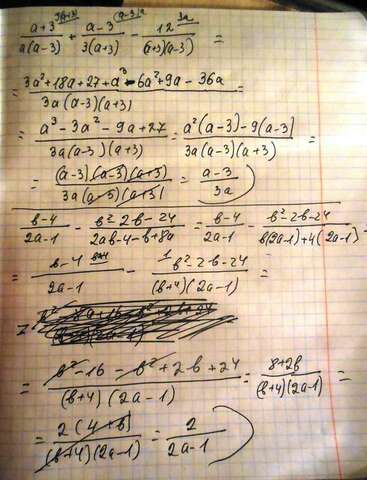 \frac{a+3^{3(a+3)}}{a(a-3)} + \frac{a-3^{(a-3)a}}{3(a+3)} - \frac{12^{3a}}{(a+3)(a-3)} =
= \frac{3a^2+18a+27+a^3-6a^2+9a-36a}{3a(a-3)(a+3)}
= \frac{a^3-3a^2-9a+27}{3a(a-3)(a+3)} = \frac{a^2(a-3)-9(a-3)}{3a(a-3)(a+3)} =
= \frac{(a-3)(a-3)(a+3)}{3a(a-3)(a+3)} = \frac{a-3}{3a}
\frac{b-4}{2a-1} - \frac{b^2-2b-24}{2ab-4-b+8a} = \frac{b-4}{2a-1} - \frac{b^2-2b-24}{b(2a-1)+4(2a-1)} -
= \frac{b-4^{b+4}}{2a-1} - \frac{^1b^2-2b-24}{(b+4)(2a-1)} =
= \frac{b^2-16-b^2+2b+24}{(b+4)(2a-1)} = \frac{8+2b}{(b+4)(2a-1)} =
= \frac{2(4+b)}{(b+4)(2a-1)} = \frac{2}{2a-1}